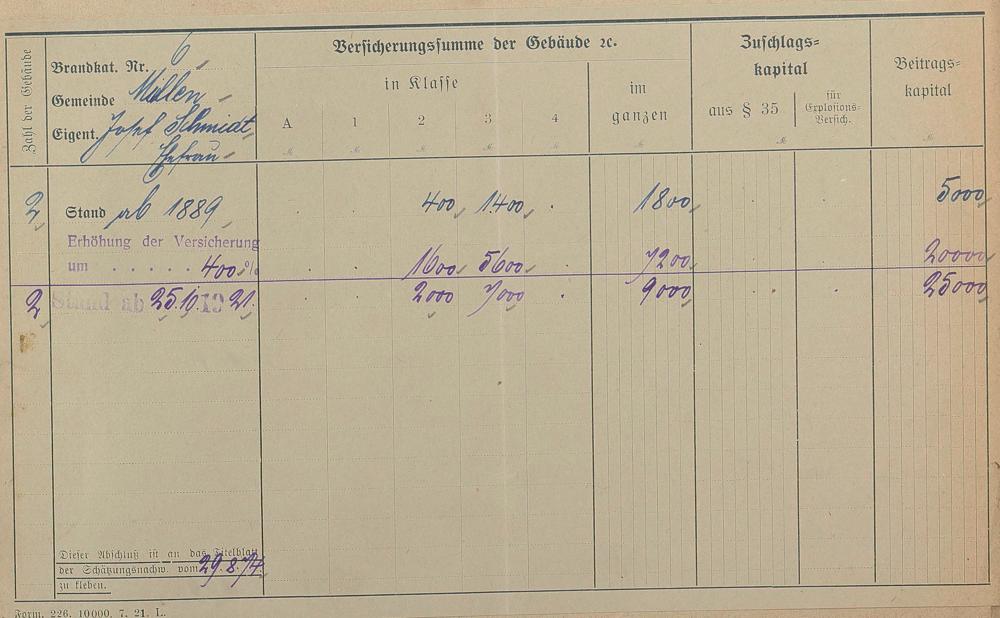 Zahl der Gebäude
Brandkat. Nr. 6
Gemeinde Millen
Eigent. Josef Schmidt
Ehefrau
Versicherungssumme der Gebäude ꝛc.
in Klasse
A 1 2 3 4
ℳ ℳ ℳ ℳ ℳ
im
ganzen
ℳ
Zuschlags-
kapital
aus § 35
für
Explosions-
Versich.
ℳ
Beitrags-
kapital
ℳ
2 Stand ab 1889 400 1400 1800 5000
Erhöhung der Versicherung
um . . . . . 400 % 1600 5600 7200 20000
2 Stand ab 25.10.1921. 2000 7000 9000 25000
Dieser Abschluß ist an das Titelblatt
der Schätzungsnachw. vom 29.8.74
zu kleben.
Form. 226. 10000. 7. 21. L.